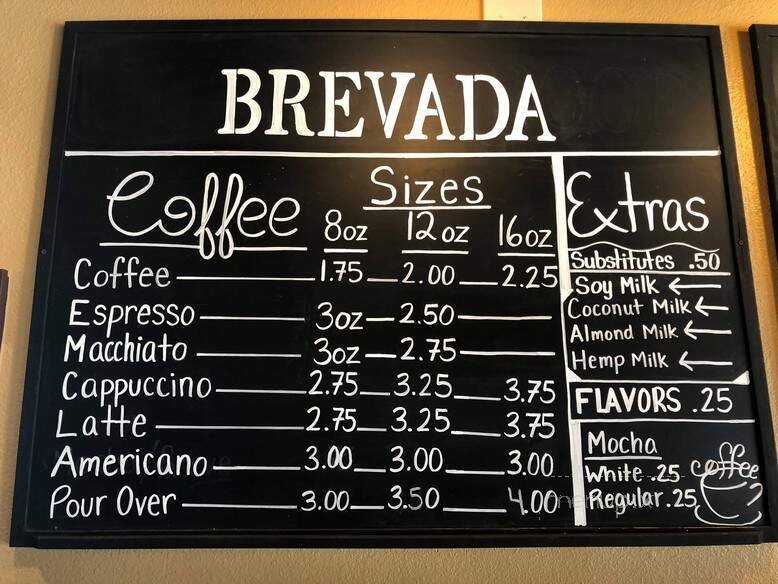 BREVADA
Coffee
Sizes
8oz 12oz 16oz
Coffee 1.75 2.00 2.25
Espresso 3oz 2.50
Macchiato 3oz 2.75
Cappuccino 2.75 3.25 3.75
Latte 2.75 3.25 3.75
Americano 3.00 3.00 3.00
Pour Over 3.00 3.50 4.00
Extras
Substitutes .50
Soy Milk
Coconut Milk
Almond Milk
Hemp Milk
FLAVORS .25
Mocha
White .25
Regular .25
coffee